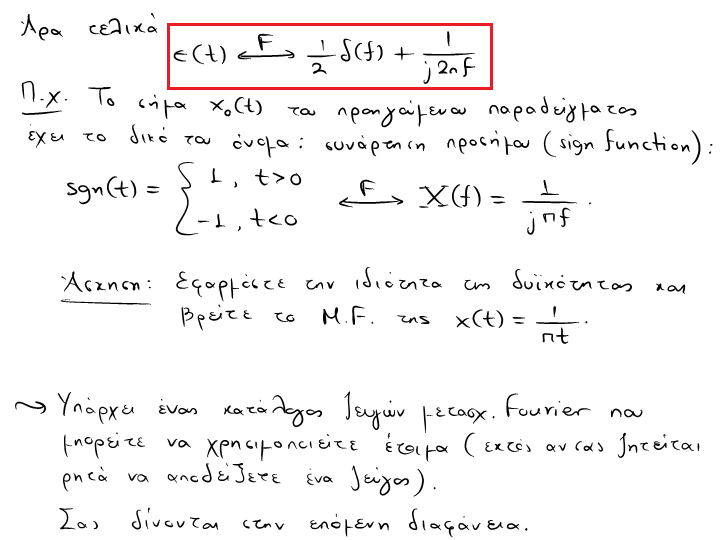 Άρα τελικά
ϵ(t) ⟷F 1/2 δ(f) + 1/(j2πf)
Π.χ. Το σήμα x₀(t) του προηγούμενου παραδείγματος
έχει το δικό του όνομα: συνάρτηση προσήμου (sign function):
sgn(t) = { 1, t>0 ; -1, t<0 ⟷F X(f) = 1/(jπf).
Άσκηση: Εφαρμόστε την ιδιότητα της δυϊκότητας και
βρείτε το Μ.F. της x(t) = 1/(πt).
⤳ Υπάρχει ένας κατάλογος ζευγών μετασχ. Fourier που
μπορείτε να χρησιμοποιείτε έτοιμα (εκτός αν σας ζητείται
ρητά να αποδείξετε ένα ζεύγος).
Σας δίνονται στην επόμενη διαφάνεια.